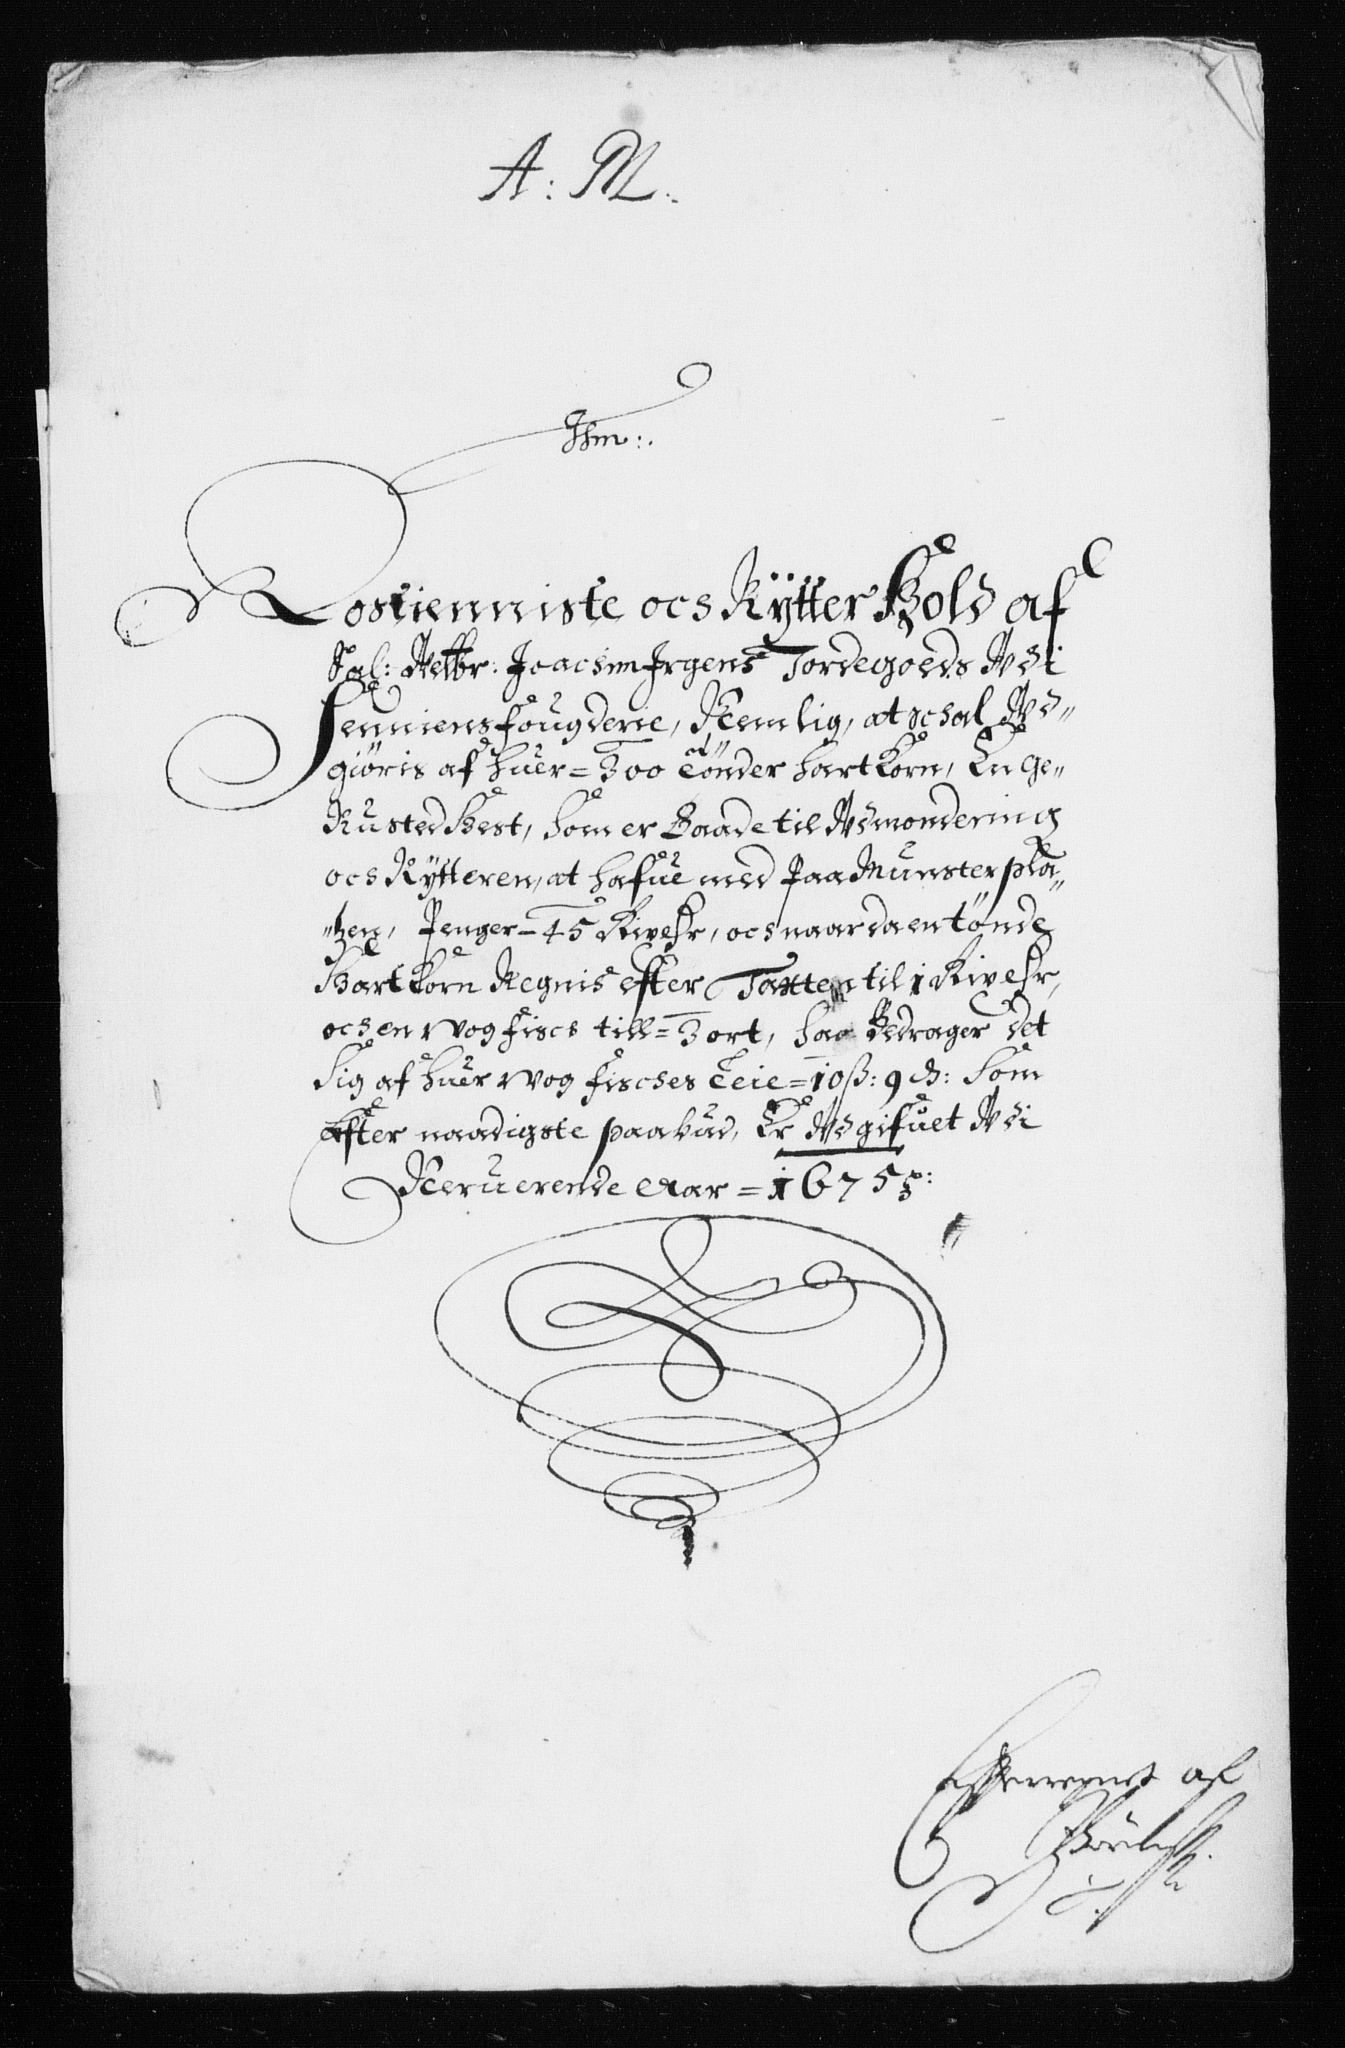 A: M.
Thm:.
Rostienniste och Rÿtter Hold af
Sal: Welbr: Joachim Irgens Jordegoeds Udi
Senniens fougderie, Nemlig, at schal Ud„
giöris af huer = 300 tönder hart Korn, En Ge„
Rusted Hest, Som er Baade til Udmondering
och Rÿtteren, at hafue med Paa Munster pla„
„tzen, Penger = 45 Rixdlr, och naar da en tönde
Hart Korn Regnis efter Taxten til 1 Rixdlr,
och en wog fisch till = 3 ort, Saa Bedrager det
Sig af huer wog fisches Leie = 10 ß: 9 d: Som
Efter naadigste paabud, Er Udgifuet Udi
Neruerende Aar = 1675:
af